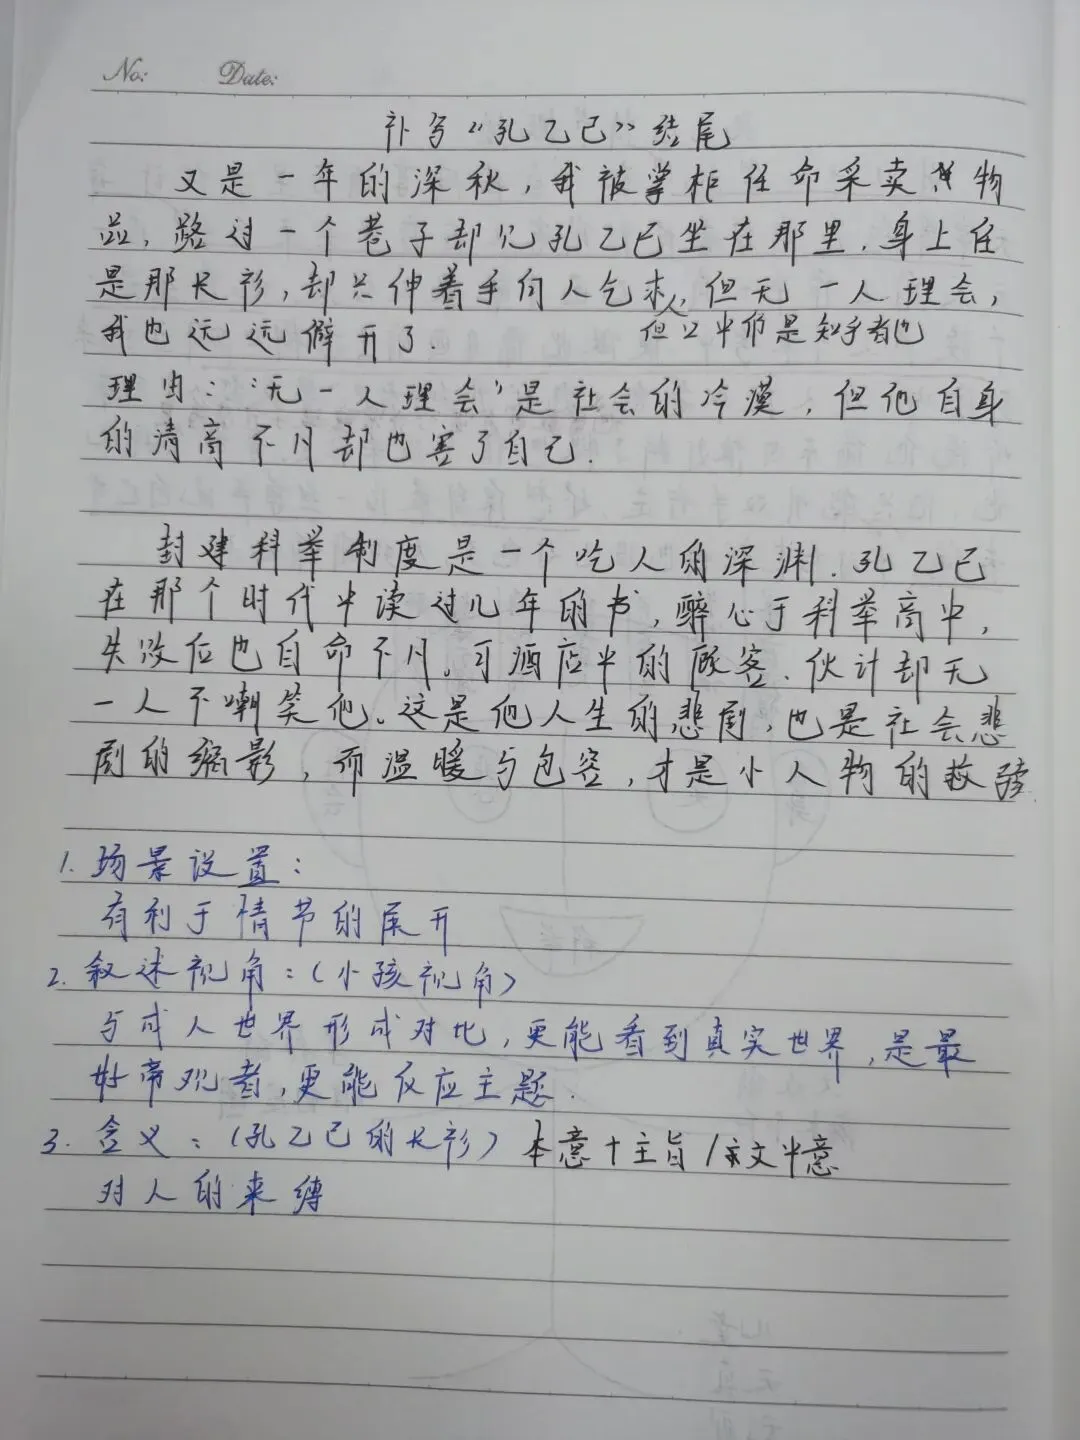 No: Date:
补写“孔乙己”结尾
又是一年的深秋，我被掌柜任命采卖物
品，路过一个巷子却见孔乙己坐在那里，身上任
是那长衫，却只伸着手向人乞求，但无一人理会，
我也远远僻开了. 但口中仍是知乎者也
理由：“无一人理会”是社会的冷漠，但他自身
的清高不凡却也害了自己.
封建科举制度是一个吃人的深渊. 孔乙己
在那个时代中读过几年的书，醉心于科举高中，
失败后也自命不凡。可酒店中的顾客、伙计却无
一人不嘲笑他。这是他人生的悲剧，也是社会悲
剧的缩影，而温暖与包容，才是小人物的救赎
1. 场景设置：
有利于情节的展开
2. 叙述视角：（小孩视角）
与成人世界形成对比，更能看到真实世界，是最
好旁观者，更能反应主题.
3. 含义：（孔乙己的长衫）本意+主旨/文中意
对人的束缚